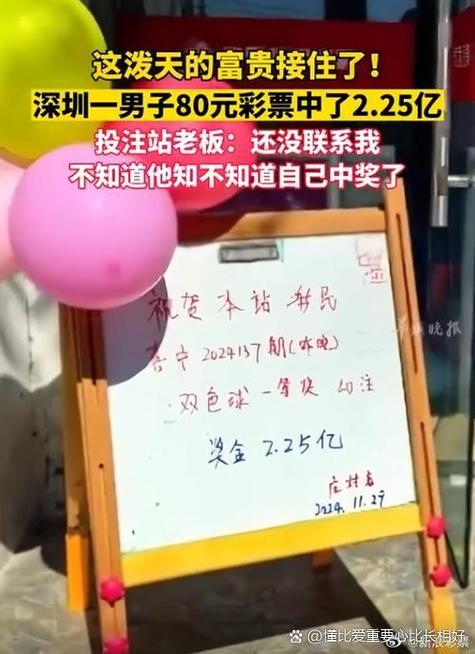 这泼天的富贵接住了!
深圳一男子80元彩票中了2.25亿
投注站老板:还没联系我
不知道他知不知道自己中奖了
祝贺本站彩民
喜中2024137期(昨晚)
双色球一等奖40注
奖金2.25亿
2024.11.27
懂比爱重要心比长相好
@新浪彩票